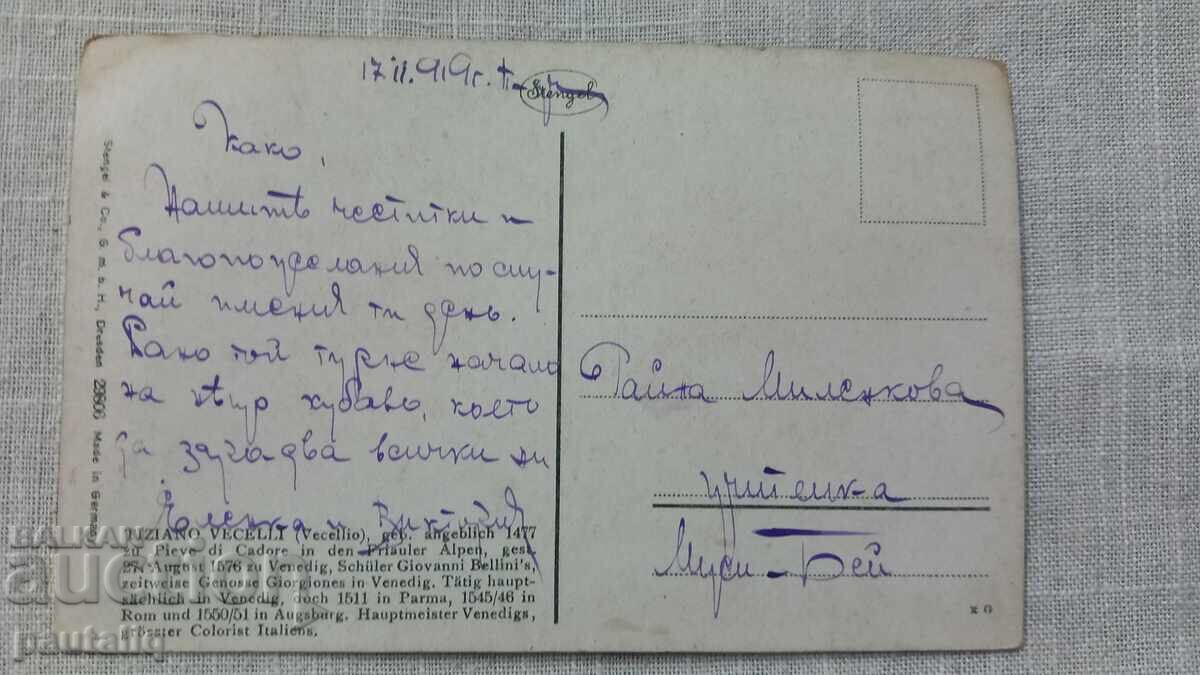 17 II. 919 г.
Stengel
Како,
Нашитѣ честитки и
благопожелания по слу-
чай имения ти день.
Како той турне начало
на нѣщо хубаво, което
да зарадва всички ни
Еленка и
Райна Миленкова
учителка
Муси-Бей
Stengel & Co., G. m. b. H., Dresden 29806 Made in Germany
TIZIANO VECELLI (Vecellio), geb. angeblich 1477
zu Pieve di Cadore in den Friauler Alpen, gest.
27. August 1576 zu Venedig, Schüler Giovanni Bellini's,
zeitweise Genosse Giorgiones in Venedig. Tätig haupt-
sächlich in Venedig, doch 1511 in Parma, 1545/46 in
Rom und 1550/51 in Augsburg. Hauptmeister Venedigs,
grösster Colorist Italiens.
x o
BALKAN
auction
pautaliq